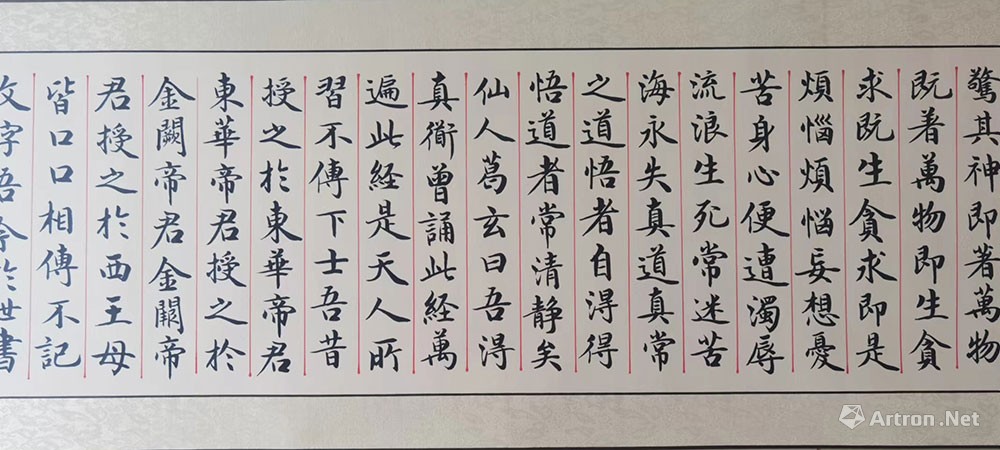 驚其神即著萬物
既着萬物即生貪
求既生貪求即是
煩惱煩惱妄想憂
苦身心便遭濁辱
流浪生死常迷苦
海永失真道真常
之道悟者自得得
悟道者常清静矣
仙人葛玄曰吾得
真衜曾誦此経萬
遍此経是天人所
習不傳下士吾昔
授之於東華帝君
東華帝君授之於
金闕帝君金闕帝
君授之於西王母
皆口口相傳不記
文字吾今於世書
Artron.Net